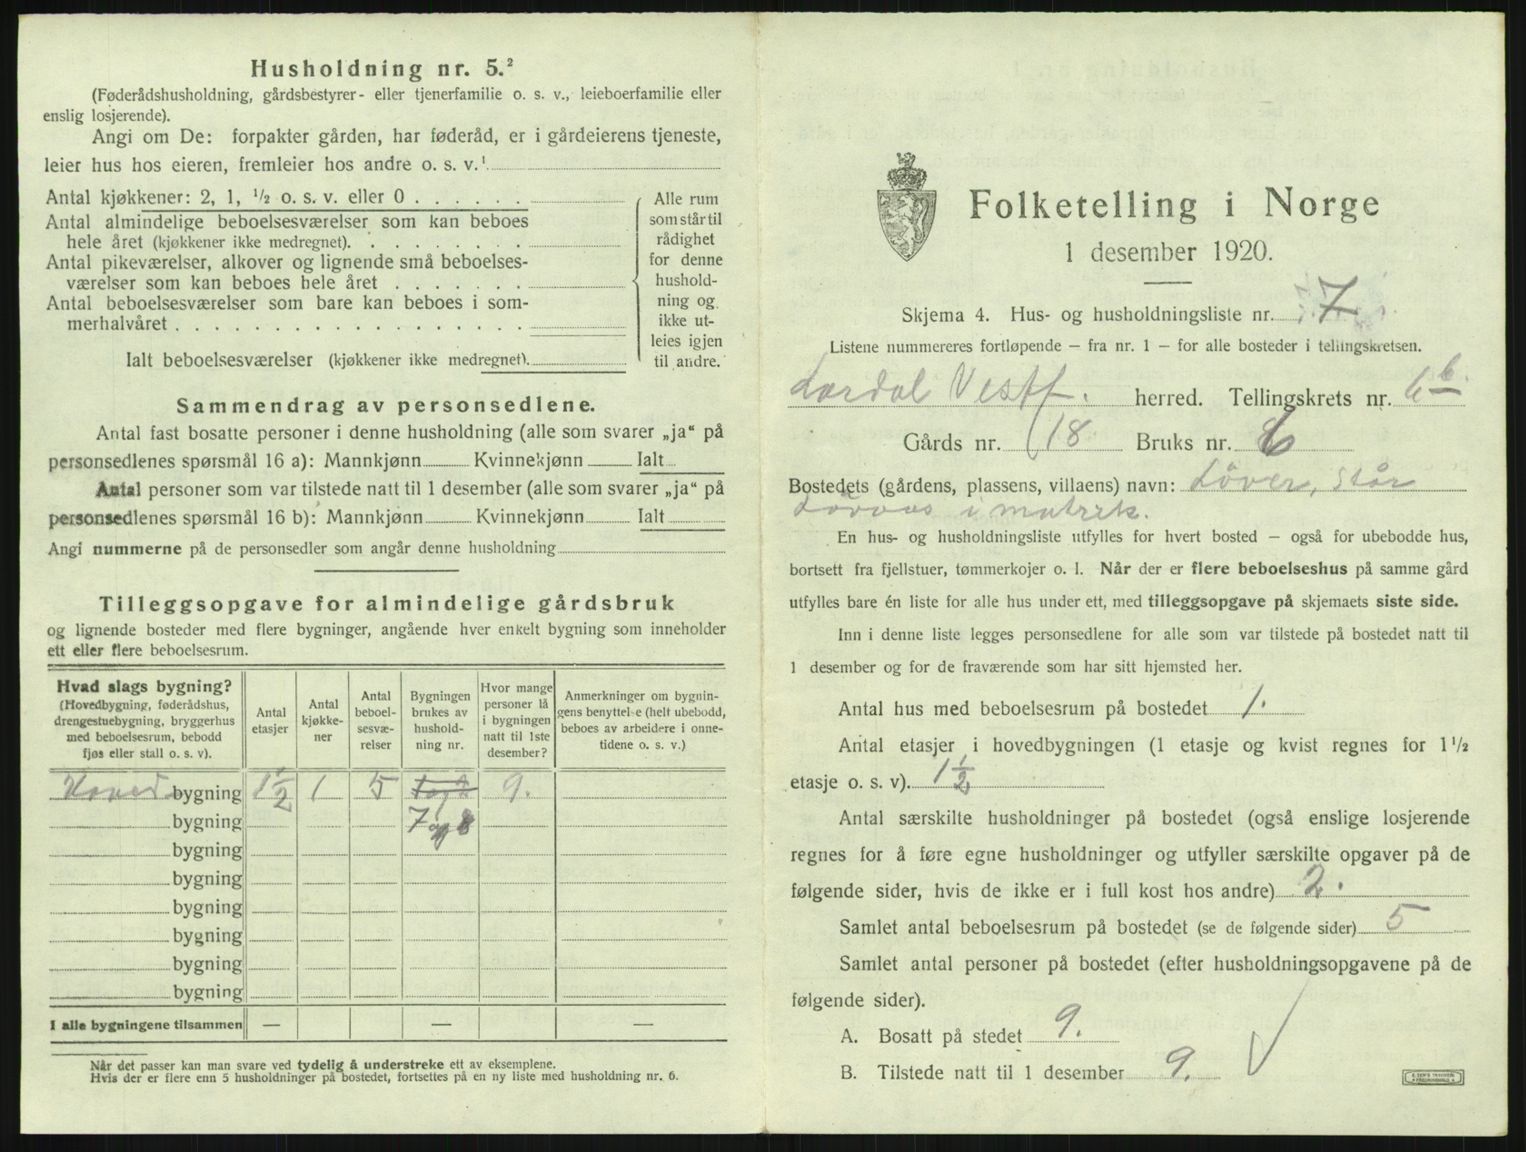 Husholdning nr. 5.²
(Føderådshusholdning, gårdsbestyrer- eller tjenerfamilie o. s. v., leieboerfamilie eller
enslig losjerende).
Angi om De: forpakter gården, har føderåd, er i gårdeierens tjeneste,
leier hus hos eieren, fremleier hos andre o. s. v.¹
Antal kjøkkener: 2, 1, ½ o. s. v. eller 0
Antal almindelige beboelsesværelser som kan beboes
hele året (kjøkkener ikke medregnet).
Antal pikeværelser, alkover og lignende små beboelses-
værelser som kan beboes hele året
Antal beboelsesværelser som bare kan beboes i som-
merhalvåret
Ialt beboelsesværelser (kjøkkener ikke medregnet).
Alle rum
som står til
rådighet
for denne
hushold-
ning og
ikke ut-
leies igjen
til andre.
Sammendrag av personsedlene.
Antal fast bosatte personer i denne husholdning (alle som svarer „ja“ på
personsedlenes spørsmål 16 a): Mannkjønn Kvinnekjønn Ialt
Antal personer som var tilstede natt til 1 desember (alle som svarer „ja“ på
personsedlenes spørsmål 16 b): Mannkjønn Kvinnekjønn Ialt
Angi nummerne på de personsedler som angår denne husholdning
Tilleggsopgave for almindelige gårdsbruk
og lignende bosteder med flere bygninger, angående hver enkelt bygning som inneholder
ett eller flere beboelsesrum.
Hvad slags bygning?
(Hovedbygning, føderådshus,
drengestuebygning, bryggerhus
med beboelsesrum, bebodd
fjøs eller stall o. s. v).
Antal
etasjer
Antal
kjøkke-
ner
Antal
beboel-
sesvæ-
relser
Bygningen
brukes av
hushold-
ning nr.
Hvor mange
personer lå
i bygningen
natt til 1ste
desember?
Anmerkninger om bygnin-
gens benyttelse (helt ubebodd,
beboes av arbeidere i onne-
tidene o. s. v.)
Hoved bygning 1½ 1 5 9.
bygning 7 og 8
bygning
bygning
bygning
bygning
bygning
bygning
I alle bygningene tilsammen — — —
Når det passer kan man svare ved tydelig å understreke ett av eksemplene.
Hvis der er flere enn 5 husholdninger på bostedet, fortsettes på en ny liste med husholdning nr. 6.
Folketelling i Norge
1 desember 1920.
Skjema 4. Hus- og husholdningsliste nr. 7
Listene nummereres fortløpende — fra nr. 1 — for alle bosteder i tellingskretsen.
Lardal Vestf. herred. Tellingskrets nr. 6 b
Gårds nr. 18 Bruks nr. 6
Bostedets (gårdens, plassens, villaens) navn: Löver, står
i matrik.
En hus- og husholdningsliste utfylles for hvert bosted — også for ubebodde hus,
bortsett fra fjellstuer, tømmerkojer o. l. Når der er flere beboelseshus på samme gård
utfylles bare én liste for alle hus under ett, med tilleggsopgave på skjemaets siste side.
Inn i denne liste legges personsedlene for alle som var tilstede på bostedet natt til
1 desember og for de fraværende som har sitt hjemsted her.
Antal hus med beboelsesrum på bostedet 1.
Antal etasjer i hovedbygningen (1 etasje og kvist regnes for 1½
etasje o. s. v). 1½
Antal særskilte husholdninger på bostedet (også enslige losjerende
regnes for å føre egne husholdninger og utfyller særskilte opgaver på de
følgende sider, hvis de ikke er i full kost hos andre) 2.
Samlet antal beboelsesrum på bostedet (se de følgende sider) 5
Samlet antal personer på bostedet (efter husholdningsopgavene på de
følgende sider).
A. Bosatt på stedet 9.
B. Tilstede natt til 1 desember 9.